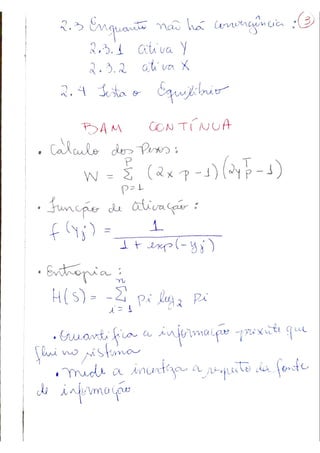 2.3 Enquanto não há convergência : (3)
2.3.1 ativa Y
2.3.2 ativa X
2.4 Testa o Equilíbrio
BAM CONTÍNUA
• Cálculo dos Pesos :
W = Σ_{p=1}^{P} (2x p - 1) (2y_p^T - 1)
• Função de ativação :
f (y_j) = 1 / (1 + exp(-y_j))
• Entropia :
H(S) = - Σ_{i=1}^{n} p_i log_2 p_i
• Quantifica a informação que
flui no sistema
• mede a incerteza a respeito da fonte
de informação